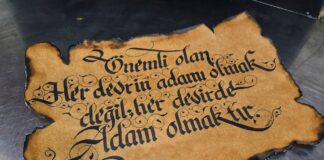 Önemli olan
Her devrin adamı olmak
değil, her devirde
Adam olmaktır